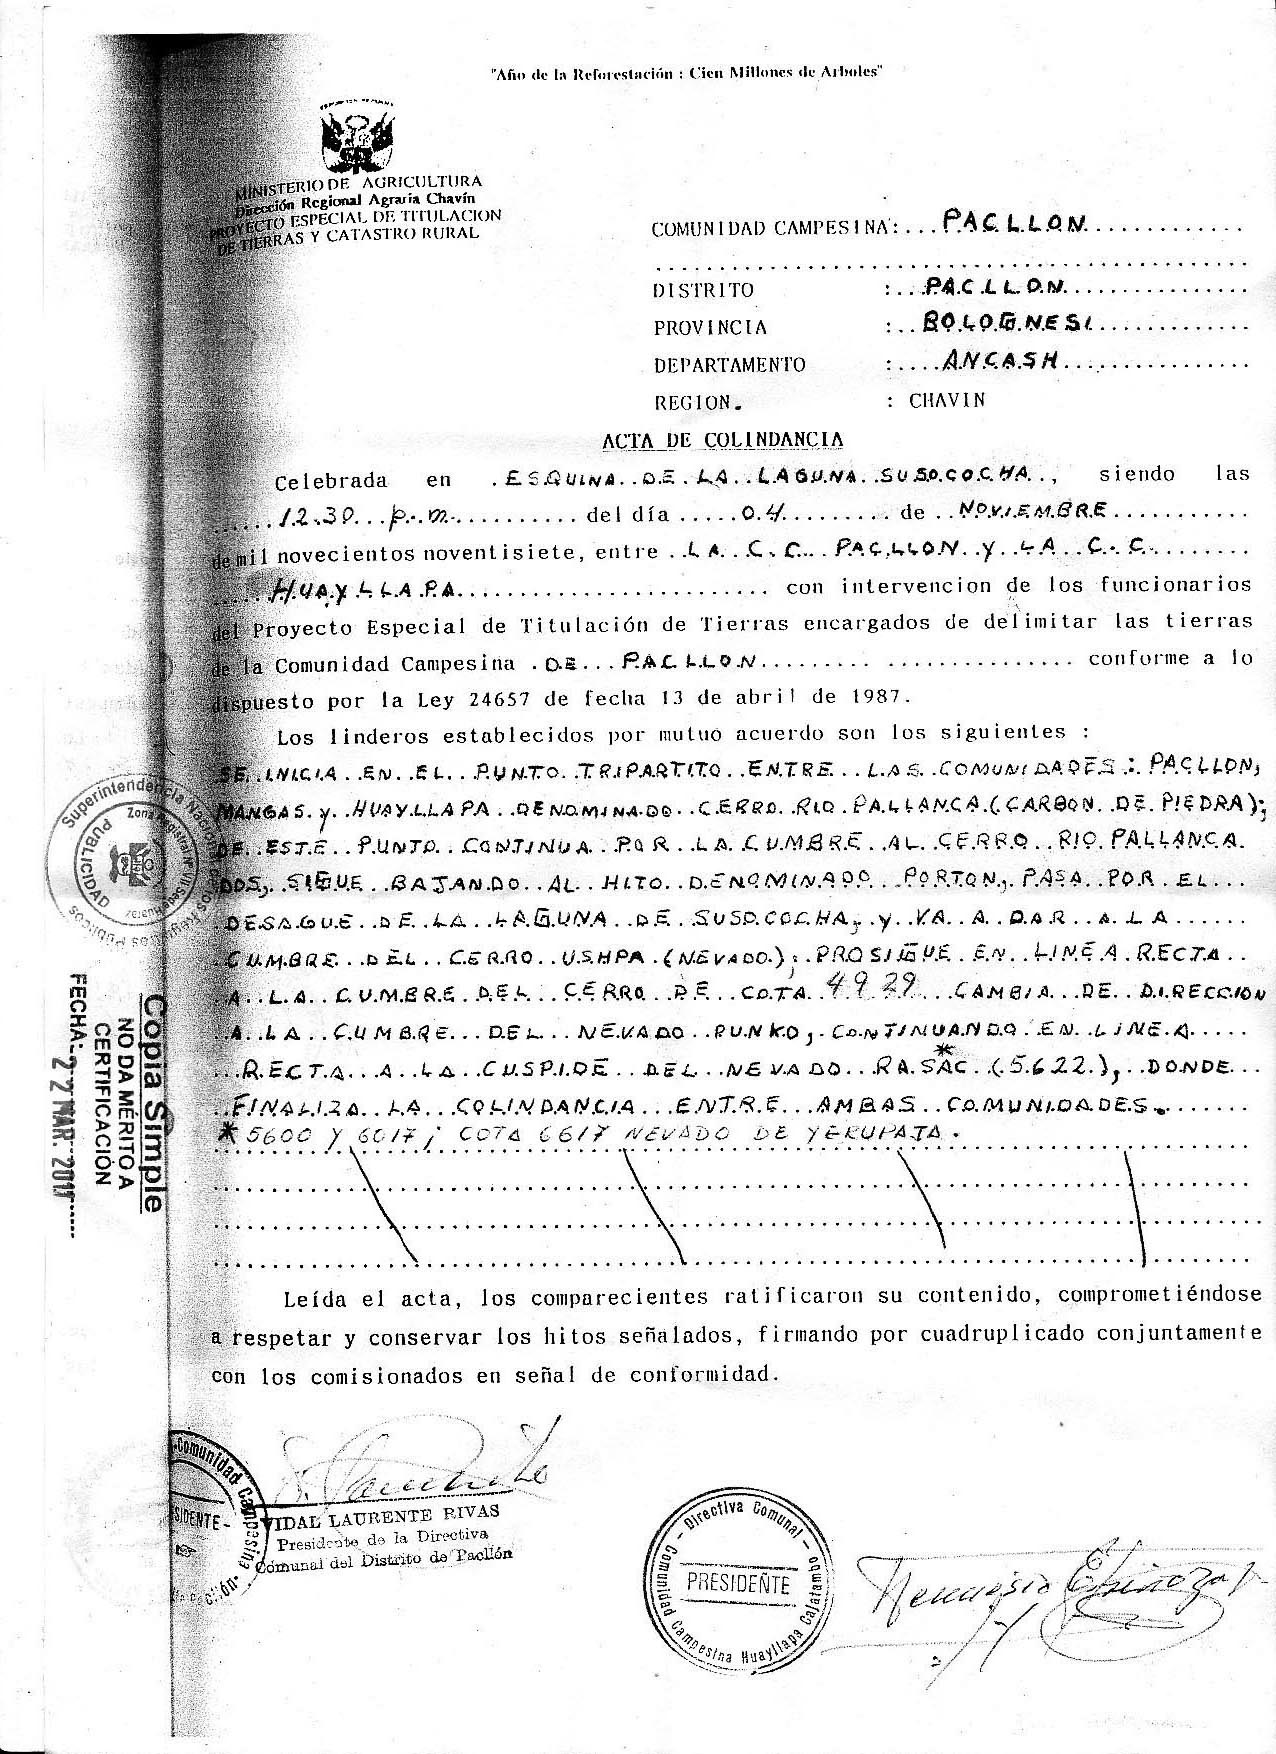 "Año de la Reforestación : Cien Millones de Arboles"
MINISTERIO DE AGRICULTURA
Dirección Regional Agraria Chavín
PROYECTO ESPECIAL DE TITULACION
DE TIERRAS Y CATASTRO RURAL
COMUNIDAD CAMPESINA: PACLLON
DISTRITO : PACLLON
PROVINCIA : BOLOGNESI
DEPARTAMENTO : ANCASH
REGION. : CHAVIN
ACTA DE COLINDANCIA
Celebrada en ESQUINA DE LA LAGUNA SUSOCOCHA, siendo las
12.30 p.m. del día 04 de NOVIEMBRE
de mil novecientos noventisiete, entre LA C.C. PACLLON y LA C.C.
HUAYLLAPA con intervencion de los funcionarios
del Proyecto Especial de Titulación de Tierras encargados de delimitar las tierras
de la Comunidad Campesina DE PACLLON conforme a lo
dispuesto por la Ley 24657 de fecha 13 de abril de 1987.
Los linderos establecidos por mutuo acuerdo son los siguientes :
SE INICIA EN EL PUNTO TRIPARTITO ENTRE LAS COMUNIDADES: PACLLON,
MANGAS y HUAYLLAPA DENOMINADO CERRO RIO PALLANCA (CARBON DE PIEDRA);
DE ESTE PUNTO CONTINUA POR LA CUMBRE AL CERRO RIO PALLANCA
DOS, SIGUE BAJANDO AL HITO DENOMINADO PORTON, PASA POR EL
DESAGUE DE LA LAGUNA DE SUSOCOCHA, y VA A DAR A LA
CUMBRE DEL CERRO USHPA (NEVADO); PROSIGUE EN LINEA RECTA
A LA CUMBRE DEL CERRO DE COTA 4929 CAMBIA DE DIRECCION
A LA CUMBRE DEL NEVADO PUNKO, CONTINUANDO EN LINEA
RECTA A LA CUSPIDE DEL NEVADO RASAC * (5622), DONDE
FINALIZA LA COLINDANCIA ENTRE AMBAS COMUNIDADES.
* 5600 Y 6017; COTA 6617 NEVADO DE YERUPAJA.
Leída el acta, los comparecientes ratificaron su contenido, comprometiéndose
a respetar y conservar los hitos señalados, firmando por cuadruplicado conjuntamente
con los comisionados en señal de conformidad.
Superintendencia Nacional
Zona Registral
PUBLICIDAD
Copia Simple
NO DA MÉRITO A
CERTIFICACIÓN
FECHA: 22 MAR. 2017
Comunidad Campesina
VIDAL LAURENTE RIVAS
Presidente de la Directiva
Comunal del Distrito de Pacllón
Directiva Comunal
PRESIDENTE
Comunidad Campesina Huayllapa Cajatambo